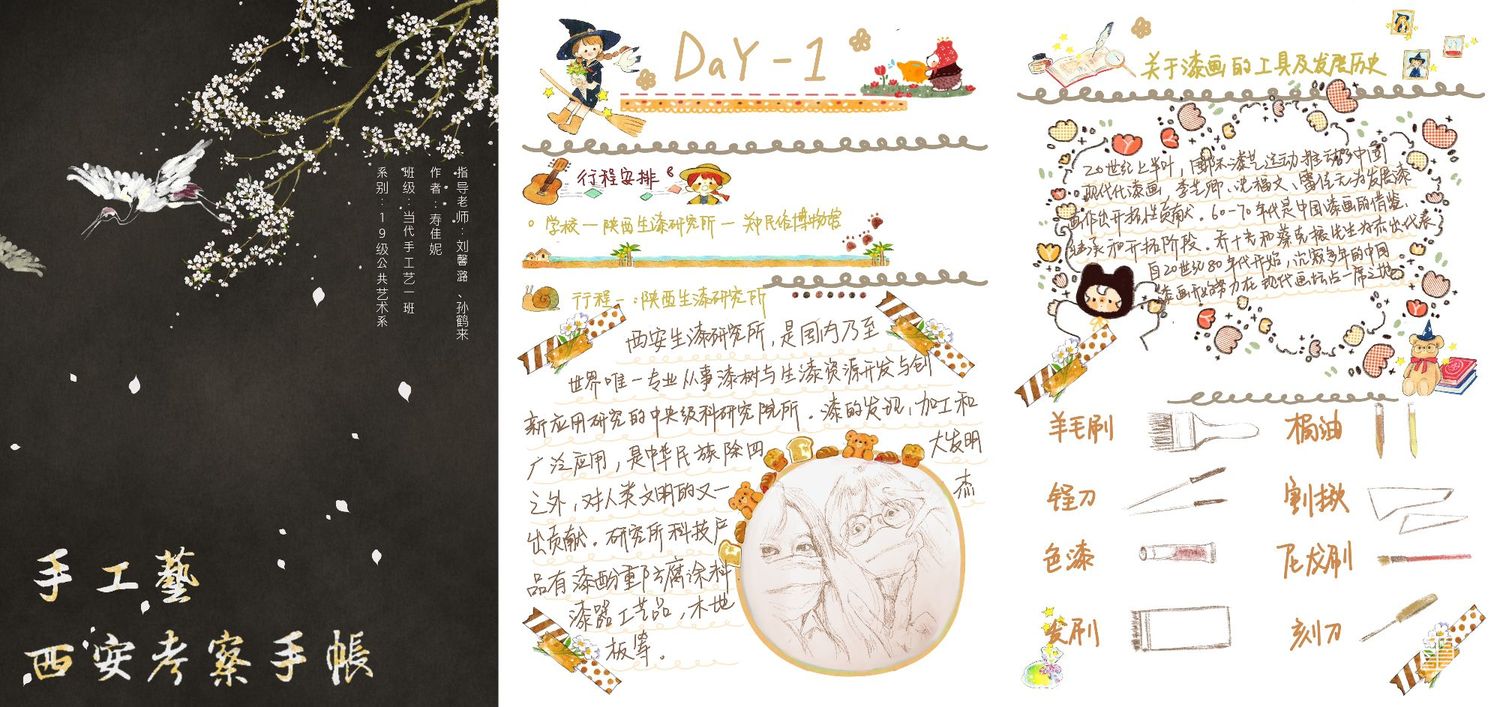 指导老师：刘馨潞、孙鹤来
作者：寿佳妮
班级：当代手工艺一班
系别：19级公共艺术系
手工藝
西安考察手帳
DaY-1
行程安排
学校—陕西生漆研究所—郑民俗博物馆
行程一：陕西生漆研究所
西安生漆研究所，是国内乃至
世界唯一专业从事漆树与生漆资源开发与创
新应用研究的中央级科研究院所。漆的发现，加工和
广泛应用，是中华民族除四大发明
之外，对人类文明的又一杰
出贡献。研究所科技产
品有漆酚重防腐涂料
漆器工艺品，木地
板等。
关于漆画的工具及发展历史
20世纪上半叶，国际漆艺运动推动了中国
现代化漆画，李芝卿、沈福文、雷佳元为发展漆
画作出开拓性贡献。60-70年代是中国漆画的借鉴，
继承和开拓阶段。乔十光和蔡克振先生为杰出代表
自20世纪80年代开始，沉寂多年的中国
漆画开始努力在现代画坛占一席之地。
羊毛刷
桐油
锉刀
割揪
色漆
尾发刷
发刷
刻刀